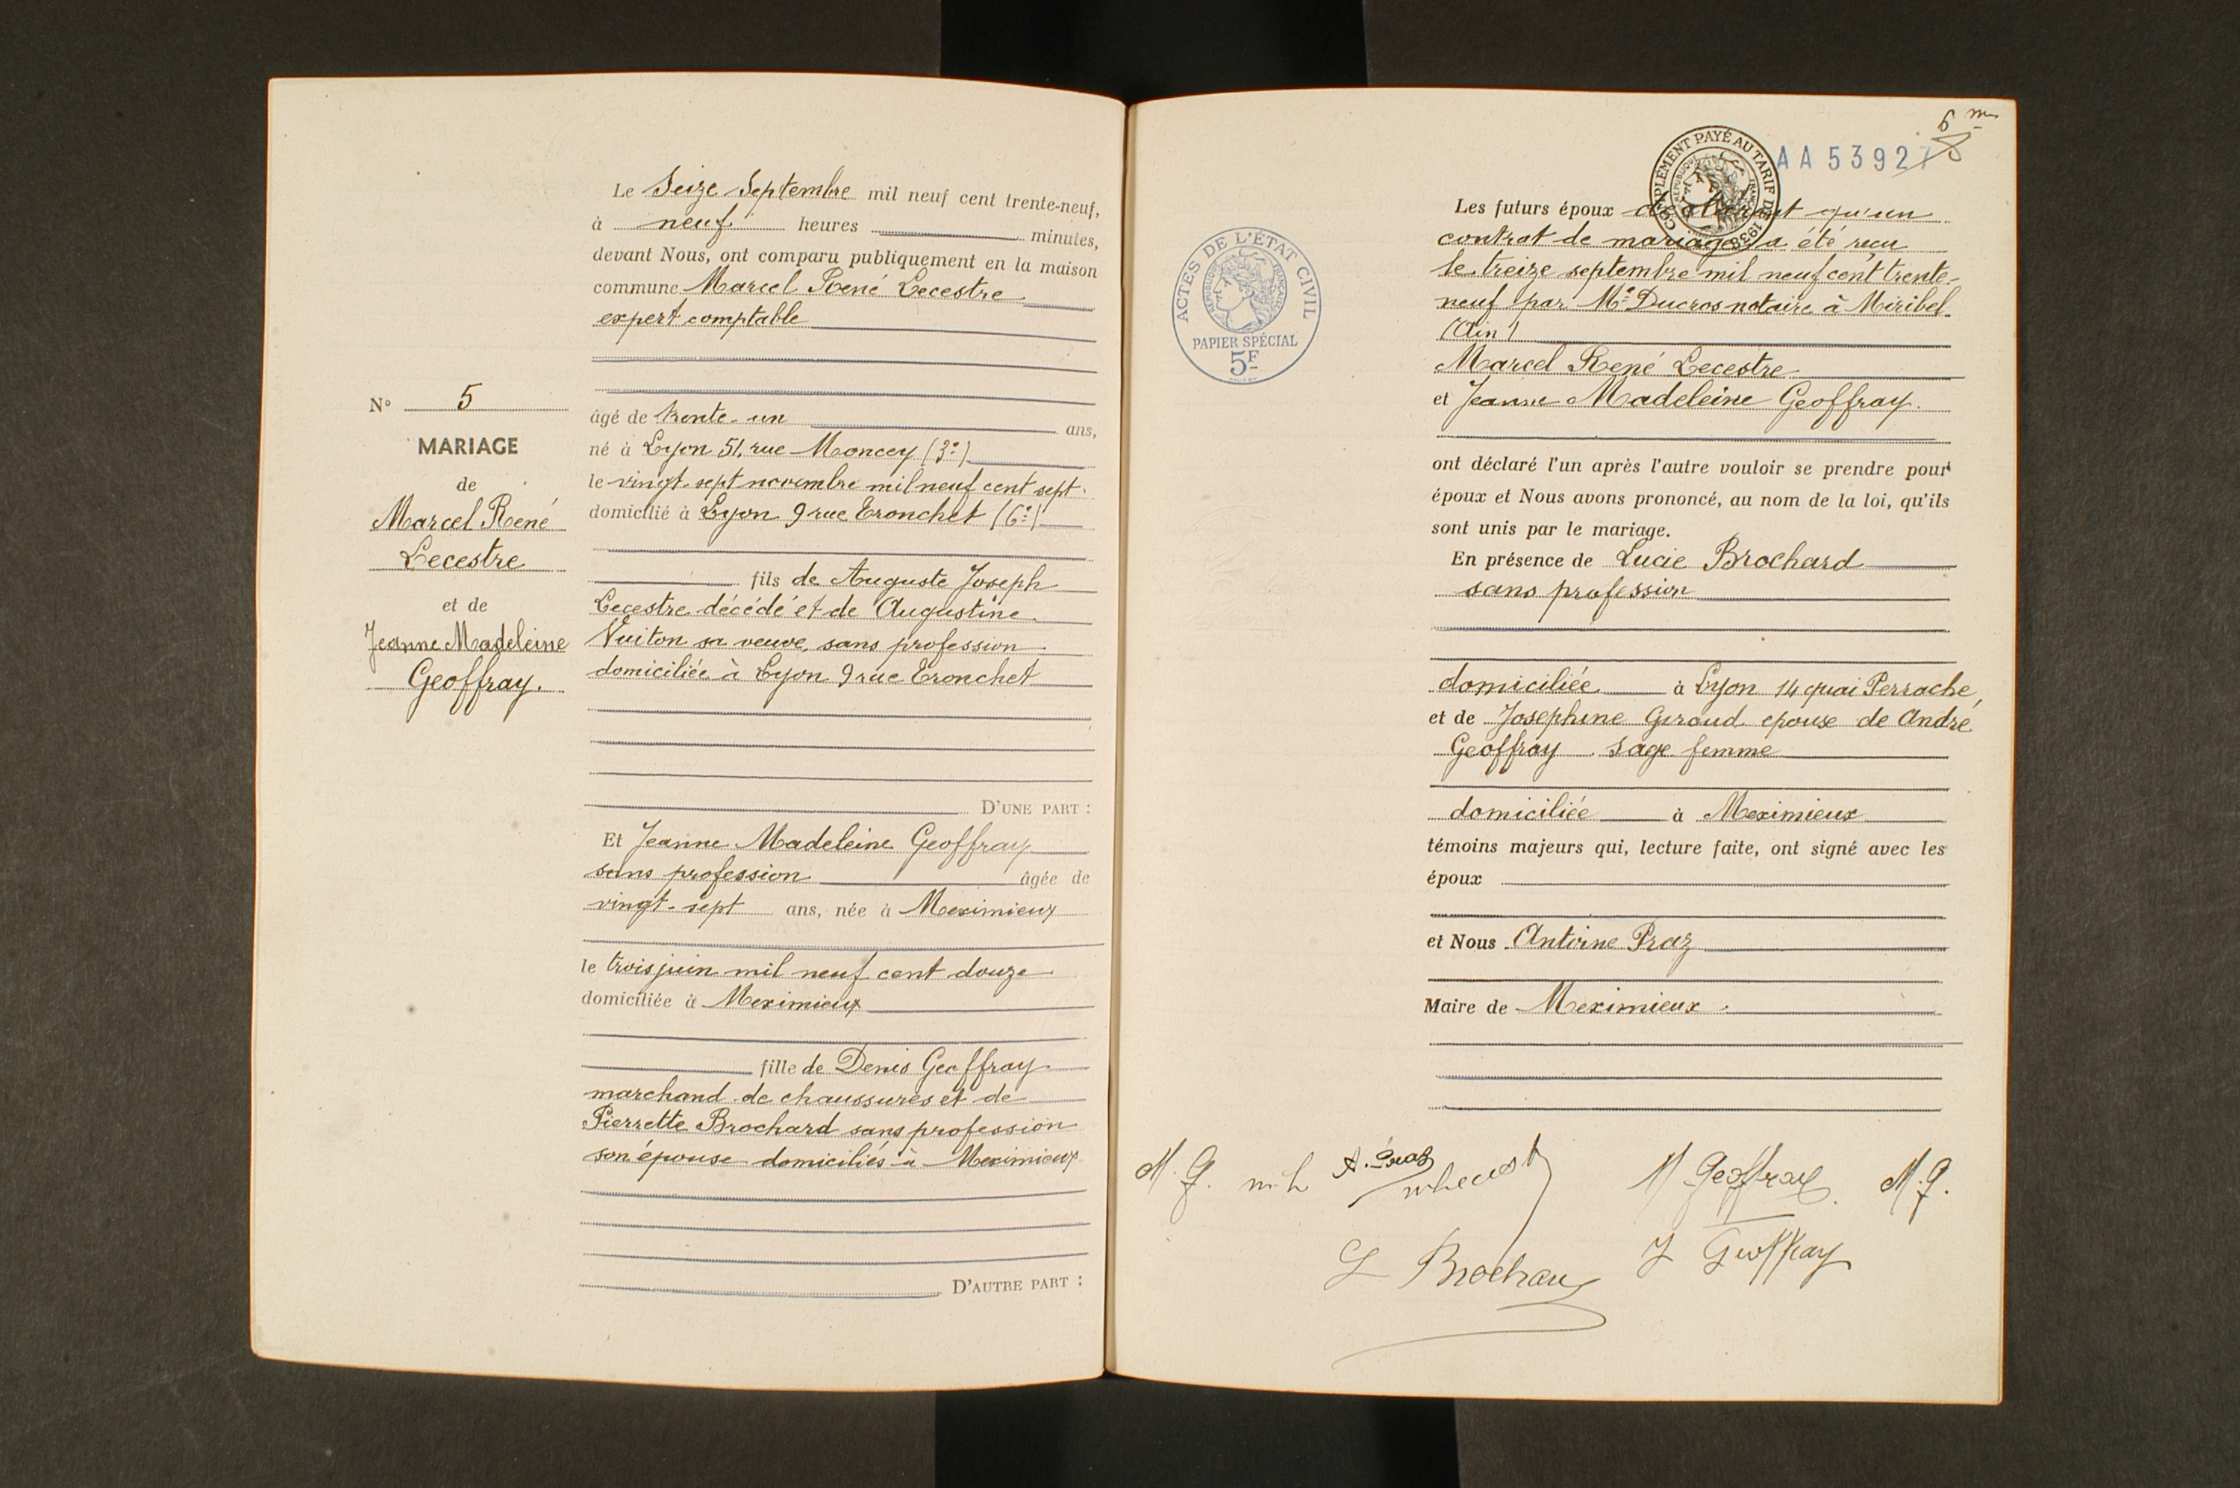 N° 5
MARIAGE
de
Marcel René
Lecestre
et de
Jeanne Madeleine
Geoffray.
Le Seize Septembre mil neuf cent trente-neuf,
à neuf heures minutes,
devant Nous, ont comparu publiquement en la maison
commune Marcel René Lecestre
expert comptable
âgé de trente-un ans,
né à Lyon 51, rue Moncey (3e)
le vingt-sept novembre mil neuf cent sept.
domicilié à Lyon 9 rue Tronchet (6e)
fils de Auguste Joseph
Lecestre décédé et de Augustine
Vuiton sa veuve, sans profession
domiciliée à Lyon 9 rue Tronchet
D'UNE PART :
Et Jeanne Madeleine Geoffray
sans profession âgée de
vingt-sept ans, née à Meximieux
le trois juin mil neuf cent douze
domiciliée à Meximieux
fille de Denis Geoffray
marchand de chaussures et de
Pierrette Brochard sans profession
son épouse domiciliés à Meximieux
D'AUTRE PART :
6
AA 5392
COMPLÉMENT PAYÉ AU TARIF DE 1938
ACTES DE L'ÉTAT CIVIL
RÉPUBLIQUE FRANÇAISE
PAPIER SPÉCIAL
5F
Les futurs époux qu'un
contrat de mariage a été reçu
le treize septembre mil neuf cent trente-
neuf par Me Ducros notaire à Miribel
(Ain)
Marcel René Lecestre
et Jeanne Madeleine Geoffray.
ont déclaré l'un après l'autre vouloir se prendre pour
époux et Nous avons prononcé, au nom de la loi, qu'ils
sont unis par le mariage.
En présence de Lucie Brochard
sans profession
domiciliée à Lyon 14 quai Perrache,
et de Josephine Giraud epouse de André
Geoffray sage femme
domiciliée à Meximieux
témoins majeurs qui, lecture faite, ont signé avec les
époux
et Nous Antoine Praz
Maire de Meximieux.
M. G. m. L A. Praz M Geoffray M. G.
L Brochard J Geoffray